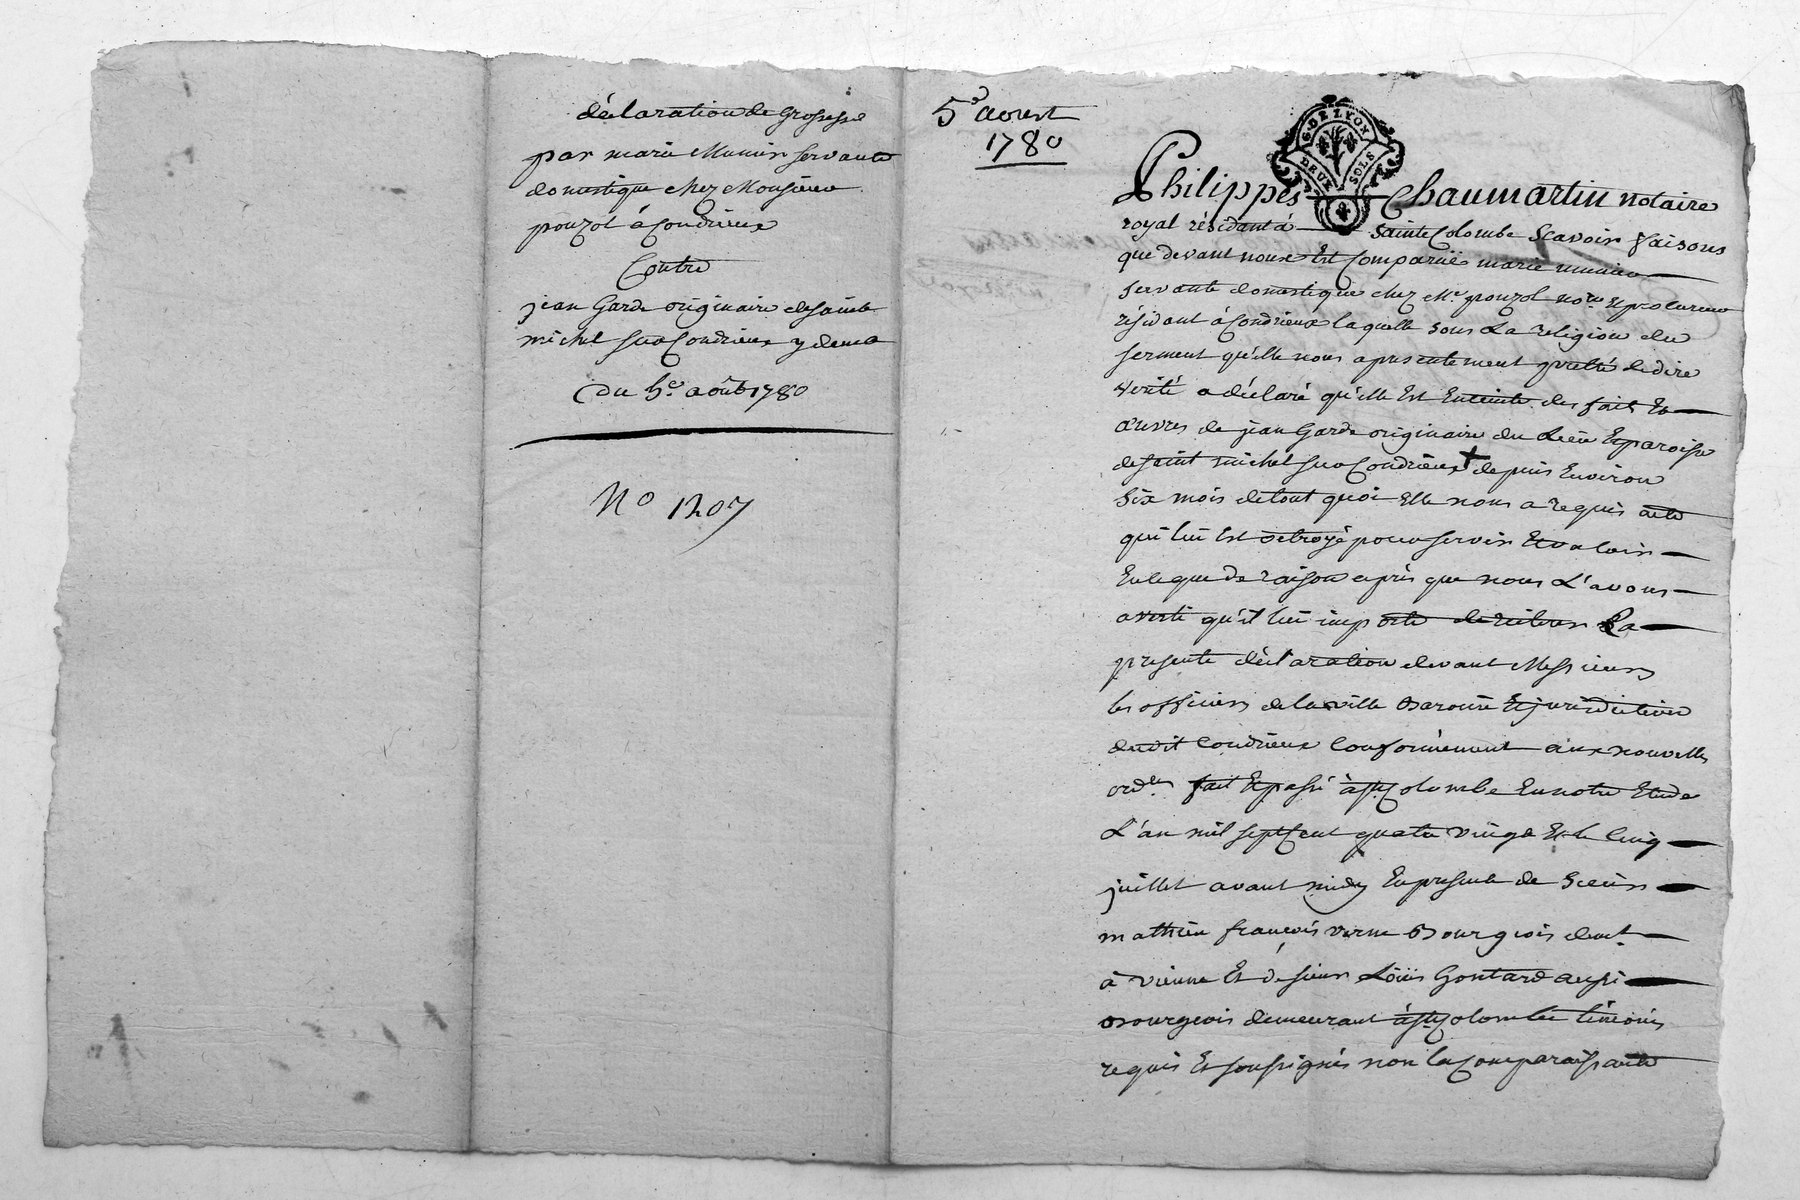 déclaration de grossesse
par marie Munier servante
domestique chez Monsieur
pouzol à Condrieux
Contre
jean Garde originaire de saint
michel sur Condrieux y demt
Du 5e. août 1780
No 1207
5e aoust
1780
G. DE LYON
DEUX SOLS
Philippes Chaumartin notaire
royal résidant à Sainte Colombe Scavoir faisons
que devant nous Est Comparüe marie munier
servante domestique chez Me. pouzol nore. Et procureur
résidant à Condrieux laquelle sous La religion du
serment qu'elle nous a presentement pretté de dire
verité a déclaré qu'elle Est Enceinte des faits Et
œuvres de jean Garde originaire du Lieu Et paroisse
de saint michel sur Condrieux + depuis Environ
six mois de tout quoi Elle nous a requis acte
qui lui Est octroyé pour servir Et valoir
Ce que de raison après que nous L'avons
averti qu'il lui importe de réiterer La
presente déclaration devant Messieurs
les officiers de la ville Baronie Et jurisdiction
dudit Condrieux Conformement aux nouvelles
ordes fait Et passé à ste Colombe En notre Etude
L'an mil sept Cent quatre vingt Et le Cinq
juillet avant midy En presence de Sieur
mathieu françois verne Bourgeois demt.
à vienne Et de sieur Loüis Gontard aussi
Bourgeois demeurant à ste Colombe témoins
requis Et soussignés non la Comparaissante